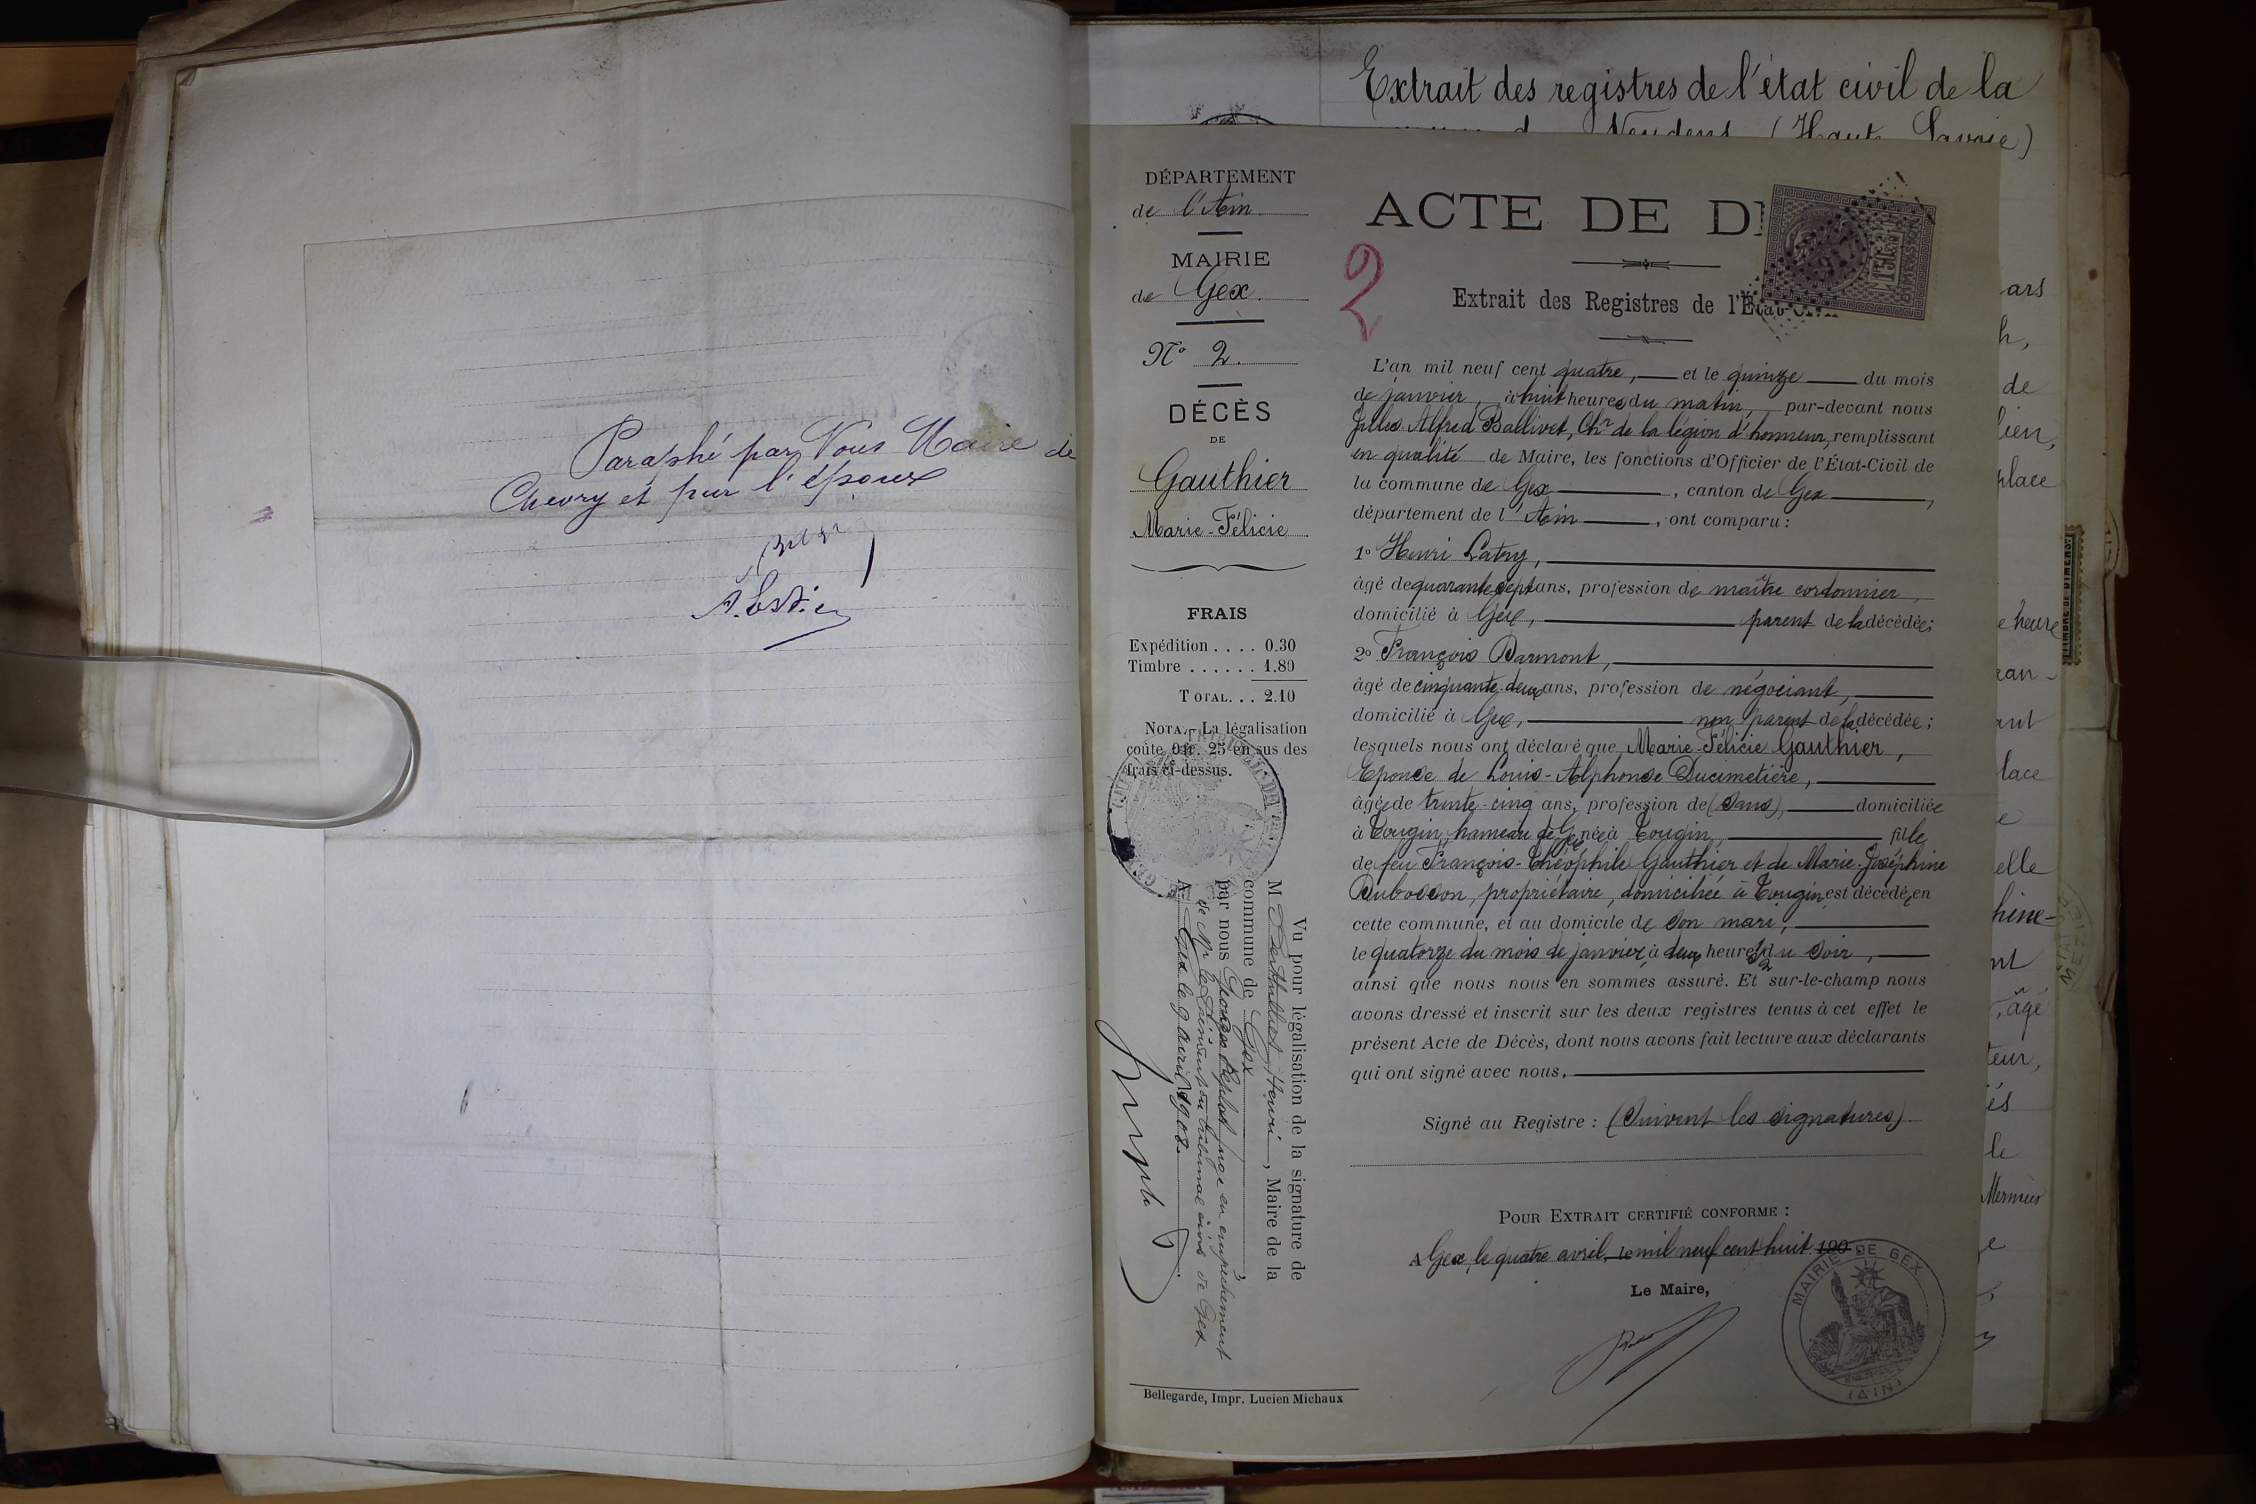 Paraphé par Nous Maire de
Chevry et par l'époux
Extrait des registres de l'état civil de la
(Haute Savoie)
DÉPARTEMENT
de l'Ain.
MAIRIE
de Gex.
N° 2.
DÉCÈS
DE
Gauthier
Marie-Félicie
FRAIS
Expédition .... 0.30
Timbre ...... 1.80
TOTAL... 2.10
NOTA.- La légalisation
coûte 0 fr. 25 en sus des
frais ci-dessus.
Vu pour légalisation de la signature de
M. Henri, Maire de la
commune de Gex,
par nous juge en empêchement
de Mr le Président du tribunal civil de Gex
A Gex le 9 avril 1908
Bellegarde, Impr. Lucien Michaux
ACTE DE
2
Extrait des Registres de l'État-Civil
L'an mil neuf cent quatre, et le quinze du mois
de janvier, à huit heures du matin, par-devant nous
Jules Alfred Ballivet, Chr de la légion d'honneur, remplissant
en qualité de Maire, les fonctions d'Officier de l'État-Civil de
la commune de Gex, canton de Gex,
département de l'Ain, ont comparu :
1° Henri Latry,
âgé de quarante sept ans, profession de maître cordonnier,
domicilié à Gex, parent de la décédée;
2° François Darmont,
âgé de cinquante-deux ans, profession de négociant,
domicilié à Gex, non parent de la décédée;
lesquels nous ont déclaré que Marie-Félicie Gauthier,
Epouse de Louis-Alphonse Ducimetière,
âgée de trente-cinq ans, profession de (sans), domiciliée
à Tougin, hameau de Gex née à Tougin, fille
de feu François-Théophile Gauthier et de Marie-Joséphine
Dubosson, propriétaire, domiciliée à Tougin est décédée en
cette commune, et au domicile de son mari,
le quatorze du mois de janvier à deux heures du soir,
ainsi que nous nous en sommes assuré. Et sur-le-champ nous
avons dressé et inscrit sur les deux registres tenus à cet effet le
présent Acte de Décès, dont nous avons fait lecture aux déclarants
qui ont signé avec nous.
Signé au Registre : (Suivent les signatures)
POUR EXTRAIT CERTIFIÉ CONFORME :
A Gex, le quatre avril, le mil neuf cent huit 190
Le Maire,
MAIRIE DE GEX
(AIN)